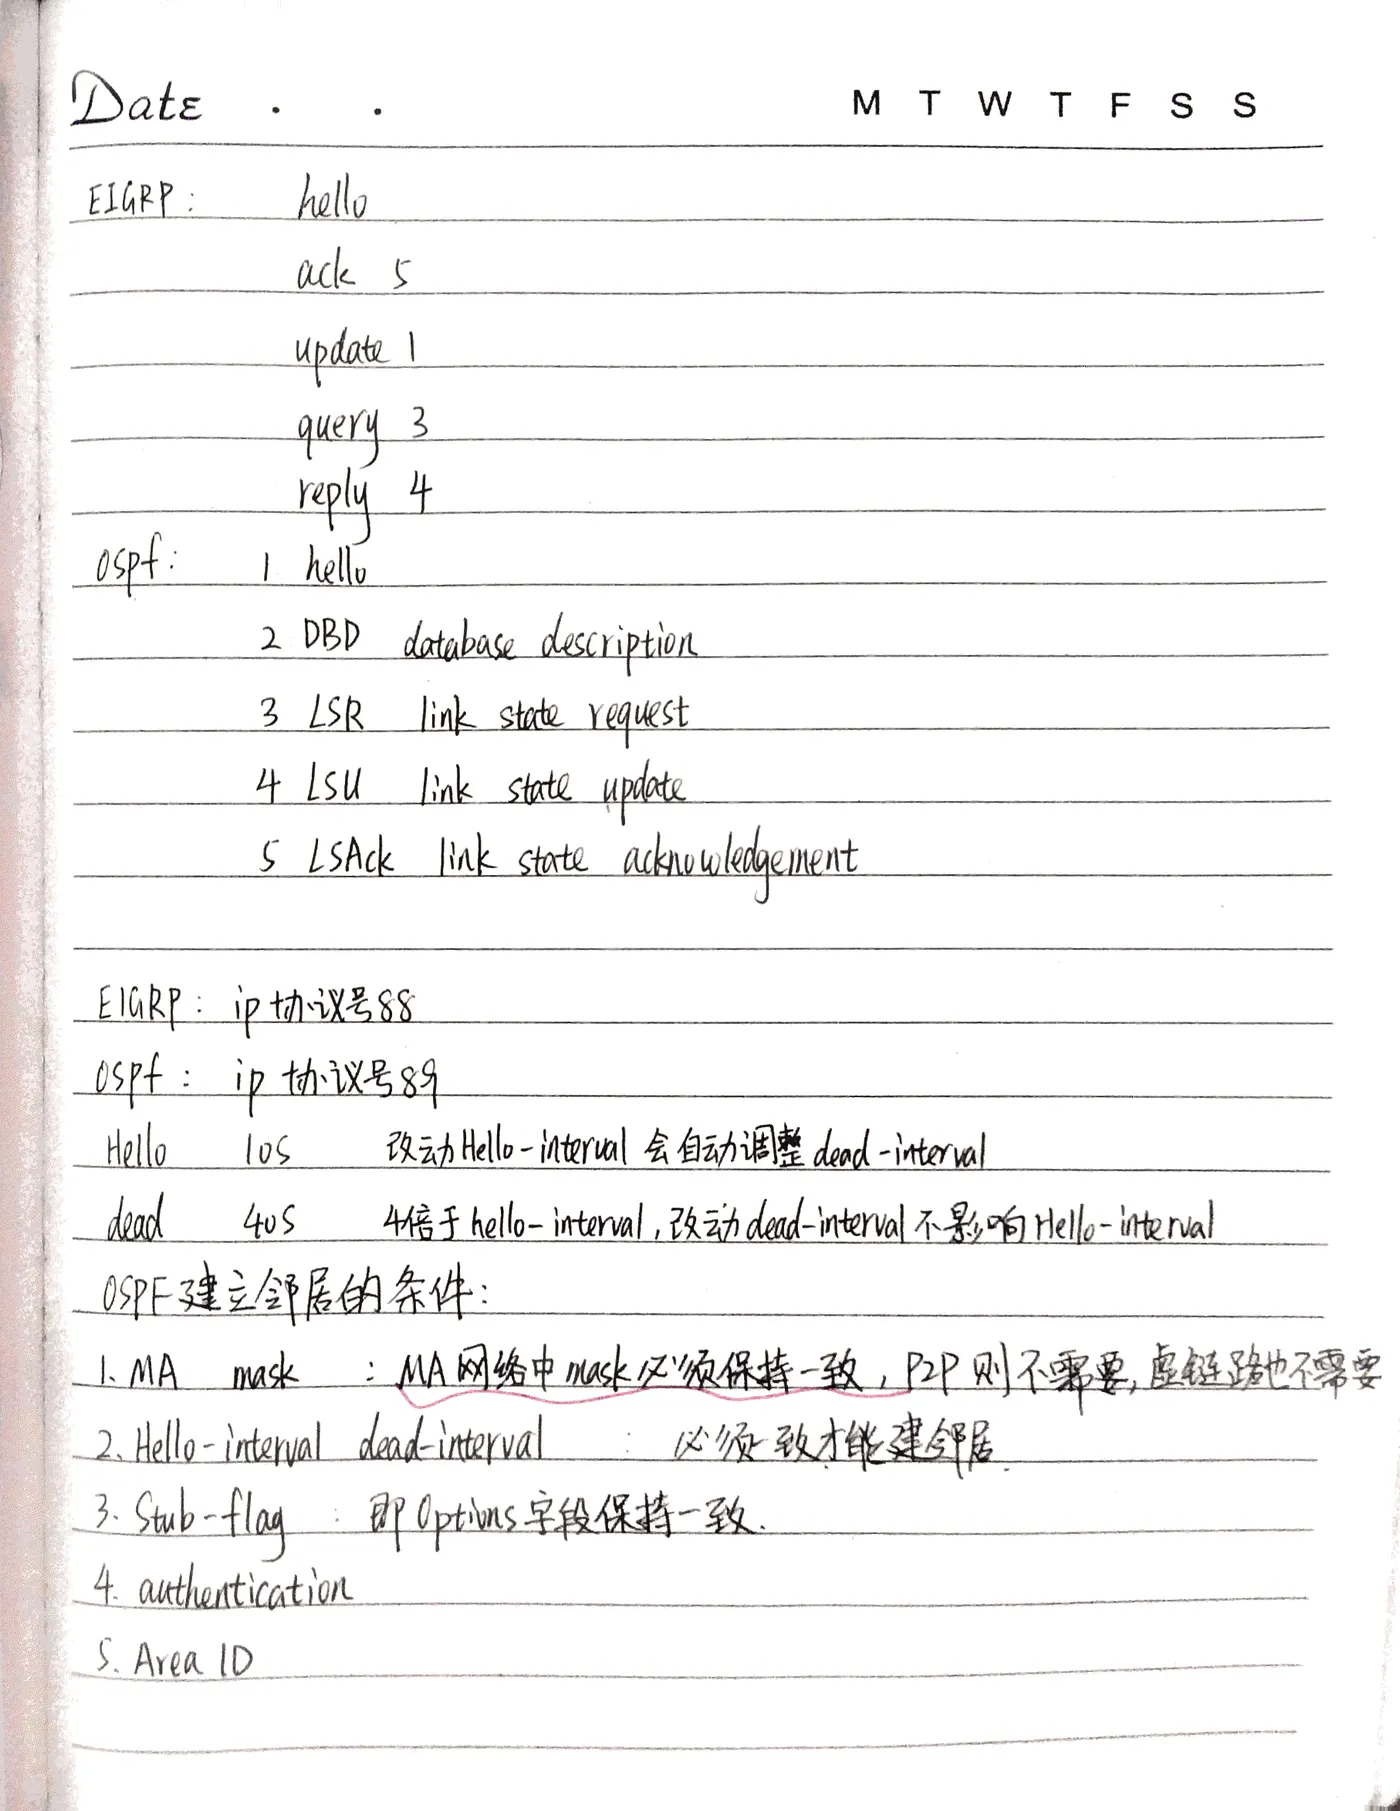 Date . . M T W T F S S
EIGRP: hello
ack 5
update 1
query 3
reply 4
ospf: 1 hello
2 DBD database description
3 LSR link state request
4 LSU link state update
5 LSAck link state acknowledgement
EIGRP: ip协议号88
ospf: ip协议号89
Hello 10S 改动Hello-interval会自动调整dead-interval
dead 40S 4倍于hello-interval,改动dead-interval不影响Hello-interval
OSPF建立邻居的条件:
1. MA mask : MA网络中mask必须保持一致,P2P则不需要,虚链路也不需要
2. Hello-interval dead-interval : 必须一致才能建邻居.
3. Stub-flag : 即Options字段保持一致.
4. authentication
5. Area ID